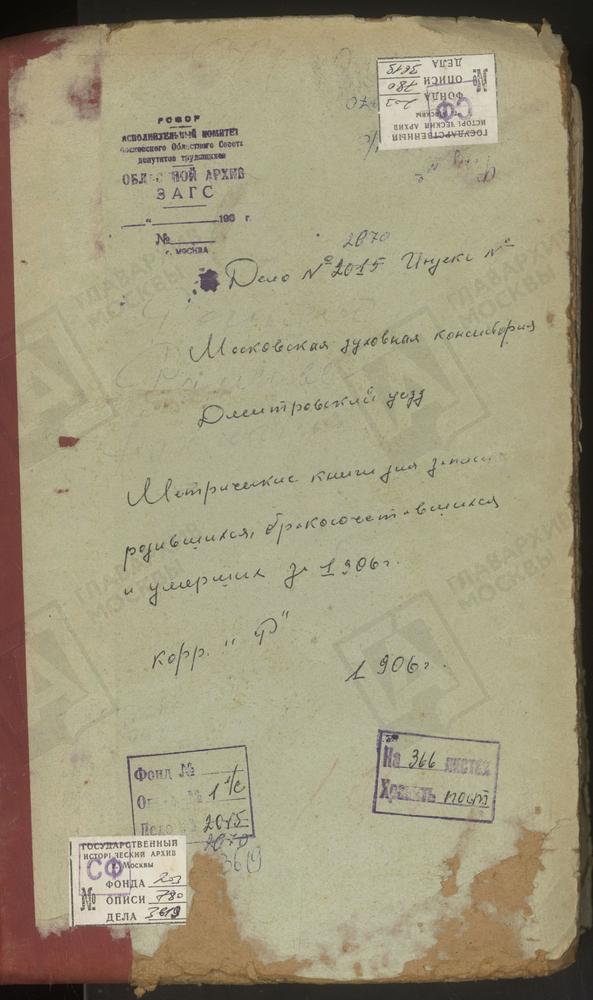 РСФСР
ИСПОЛНИТЕЛЬНЫЙ КОМИТЕТ
Московского Областного Совета
депутатов трудящихся
ОБЛАСТНОЙ АРХИВ
ЗАГС
"
193 г.
№
г. МОСКВА
ГОСУДАРСТВЕННЫЙ
ИСТОРИЧЕСКИЙ АРХИВ
г. Москвы
СФ
ФОНДА 203
№ ОПИСИ 780
ДЕЛА 3619
2070
Дело № 2015 Индекс №
Московская духовная консистория
Дмитровский уезд
Метрические книги для записи
родившихся, бракосочетавшихся
и умерших за 1906г.
корр. "Ф"
1906г.
Фонд №
Опись № 1 1/с
Дело № 2015
2070
3619
На 366 листах
Хранить пост
ГОСУДАРСТВЕННЫЙ
ИСТОРИЧЕСКИЙ АРХИВ
г. Москвы
СФ
ФОНДА 203
№ ОПИСИ 780
ДЕЛА 3619
ГЛАВАРХИВ
МОСКВЫ